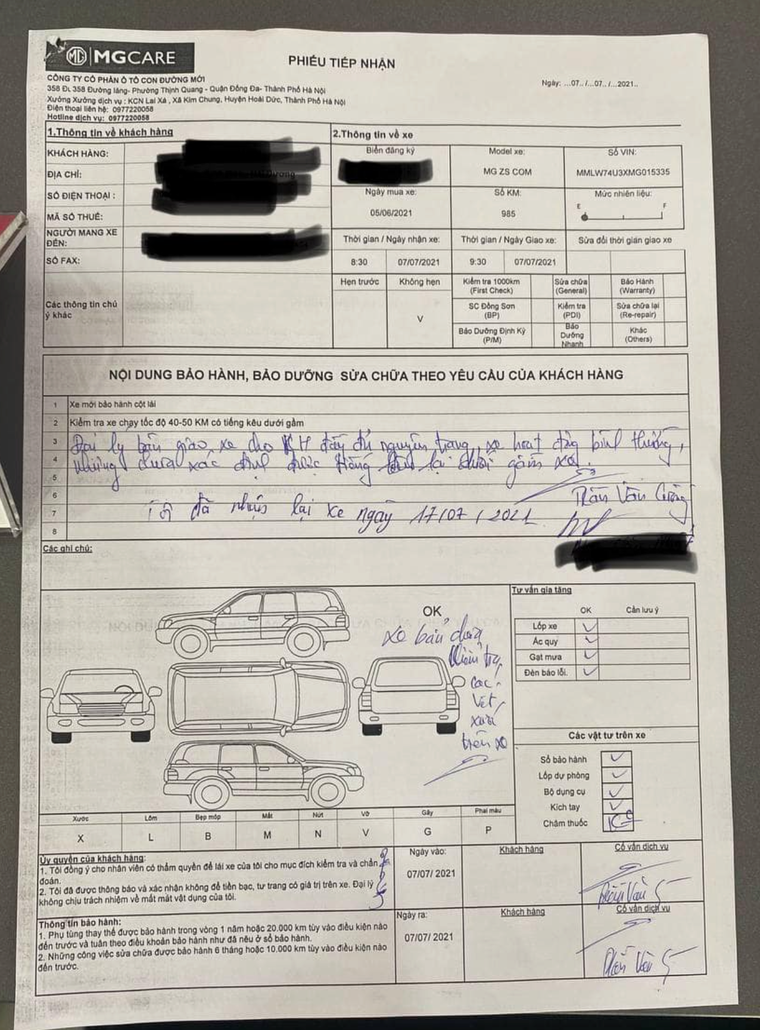 MG MGCARE
PHIẾU TIẾP NHẬN
CÔNG TY CỔ PHẦN Ô TÔ CON ĐƯỜNG MỚI
Ngày: ...07../...07../...2021..
358 Đi, 358 Đường láng- Phường Thịnh Quang - Quận Đống Đa- Thành Phố Hà Nội
Xưởng Xưởng dịch vụ : KCN Lai Xá , Xã Kim Chung, Huyện Hoài Dức, Thành Phố Hà Nội
Điện thoại liên hệ: 0977220058
Hotline dịch vụ: 0977220058
1.Thông tin về khách hàng
2.Thông tin về xe
KHÁCH HÀNG:
Biển đăng ký
Model xe:
Số VIN:
ĐỊA CHỈ:
MG ZS COM
MMLW74U3XMG015335
SỐ ĐIỆN THOẠI :
Ngày mua xe:
Số KM:
Mức nhiên liệu:
E F
MÃ SỐ THUẾ:
05/06/2021
985
NGƯỜI MANG XE ĐẾN:
Thời gian / Ngày nhận xe:
Thời gian / Ngày Giao xe:
Sửa đổi thời gian giao xe
SỐ FAX:
8:30 07/07/2021
9:30 07/07/2021
Các thông tin chú ý khác
Hẹn trước
Không hẹn
V
Kiểm tra 1000km (First Check)
Sửa chữa (General)
Bảo Hành (Warranty)
SC Đồng Sơn (BP)
Kiểm tra (PDI)
Sửa chữa lại (Re-repair)
Bảo Dưỡng Định Kỳ (P/M)
Bảo Dưỡng Nhanh
Khác (Others)
NỘI DUNG BẢO HÀNH, BẢO DƯỠNG SỬA CHỮA THEO YÊU CẦU CỦA KHÁCH HÀNG
1 Xe mới bảo hành cột lái
2 Kiểm tra xe chạy tốc độ 40-50 KM có tiếng kêu dưới gầm
3 Đại lý bàn giao xe cho KH đầy đủ nguyên trạng, xe hoạt động bình thường,
4 nhưng chưa xác định được tiếng kêu lại dưới gầm xe.
5
6 Trần Văn Cường
7 Tôi đã nhận lại xe ngày 17/07/2021
8
Các ghi chú:
OK
xe bẩn chưa
kiểm tra
các
vết
xước
trên xe
Tư vấn gia tăng
OK Cần lưu ý
Lốp xe
Ắc quy
Gạt mưa
Đèn báo lỗi.
Các vật tư trên xe
Sổ bảo hành
Lốp dự phòng
Bộ dụng cụ
Kích tay
Châm thuốc
Xước Lõm Bẹp móp Mất Nứt Vỡ Gãy Phai màu
X L B M N V G P
Ủy quyền của khách hàng:
1. Tôi đồng ý cho nhân viên có thẩm quyền để lái xe của tôi cho mục đích kiểm tra và chẩn đoán.
2. Tôi đã được thông báo và xác nhận không để tiền bạc, tư trang có giá trị trên xe. Đại lý
không chịu trách nhiệm về mất mát vật dụng của tôi.
Ngày vào:
07/07/ 2021
Khách hàng
Cố vấn dịch vụ
Thông tin bảo hành:
1. Phụ tùng thay thế được bảo hành trong vòng 1 năm hoặc 20.000 km tùy vào điều kiện nào
đến trước và tuân theo điều khoản bảo hành như đã nêu ở sổ bảo hành.
2. Những công việc sửa chữa được bảo hành 6 tháng hoặc 10.000 km tùy vào điều kiện nào
đến trước.
Ngày ra:
07/07/ 2021
Khách hàng
Cố vấn dịch vụ